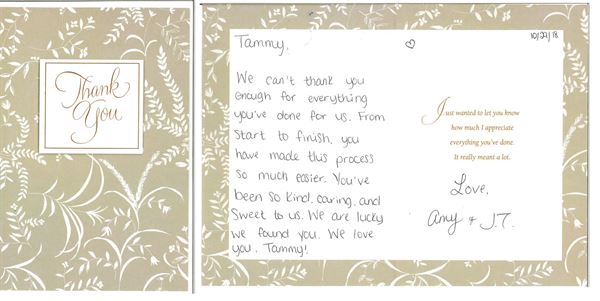 Thank
You
10/27/18
Tammy,
We can't thank you
enough for everything
you've done for us. From
start to finish, you
have made this process
so much easier. You've
been so kind, caring, and
sweet to us. We are lucky
we found you. We love
you, Tammy!
Just wanted to let you know
how much I appreciate
everything you've done.
It really meant a lot.
Love,
Amy & J.T.